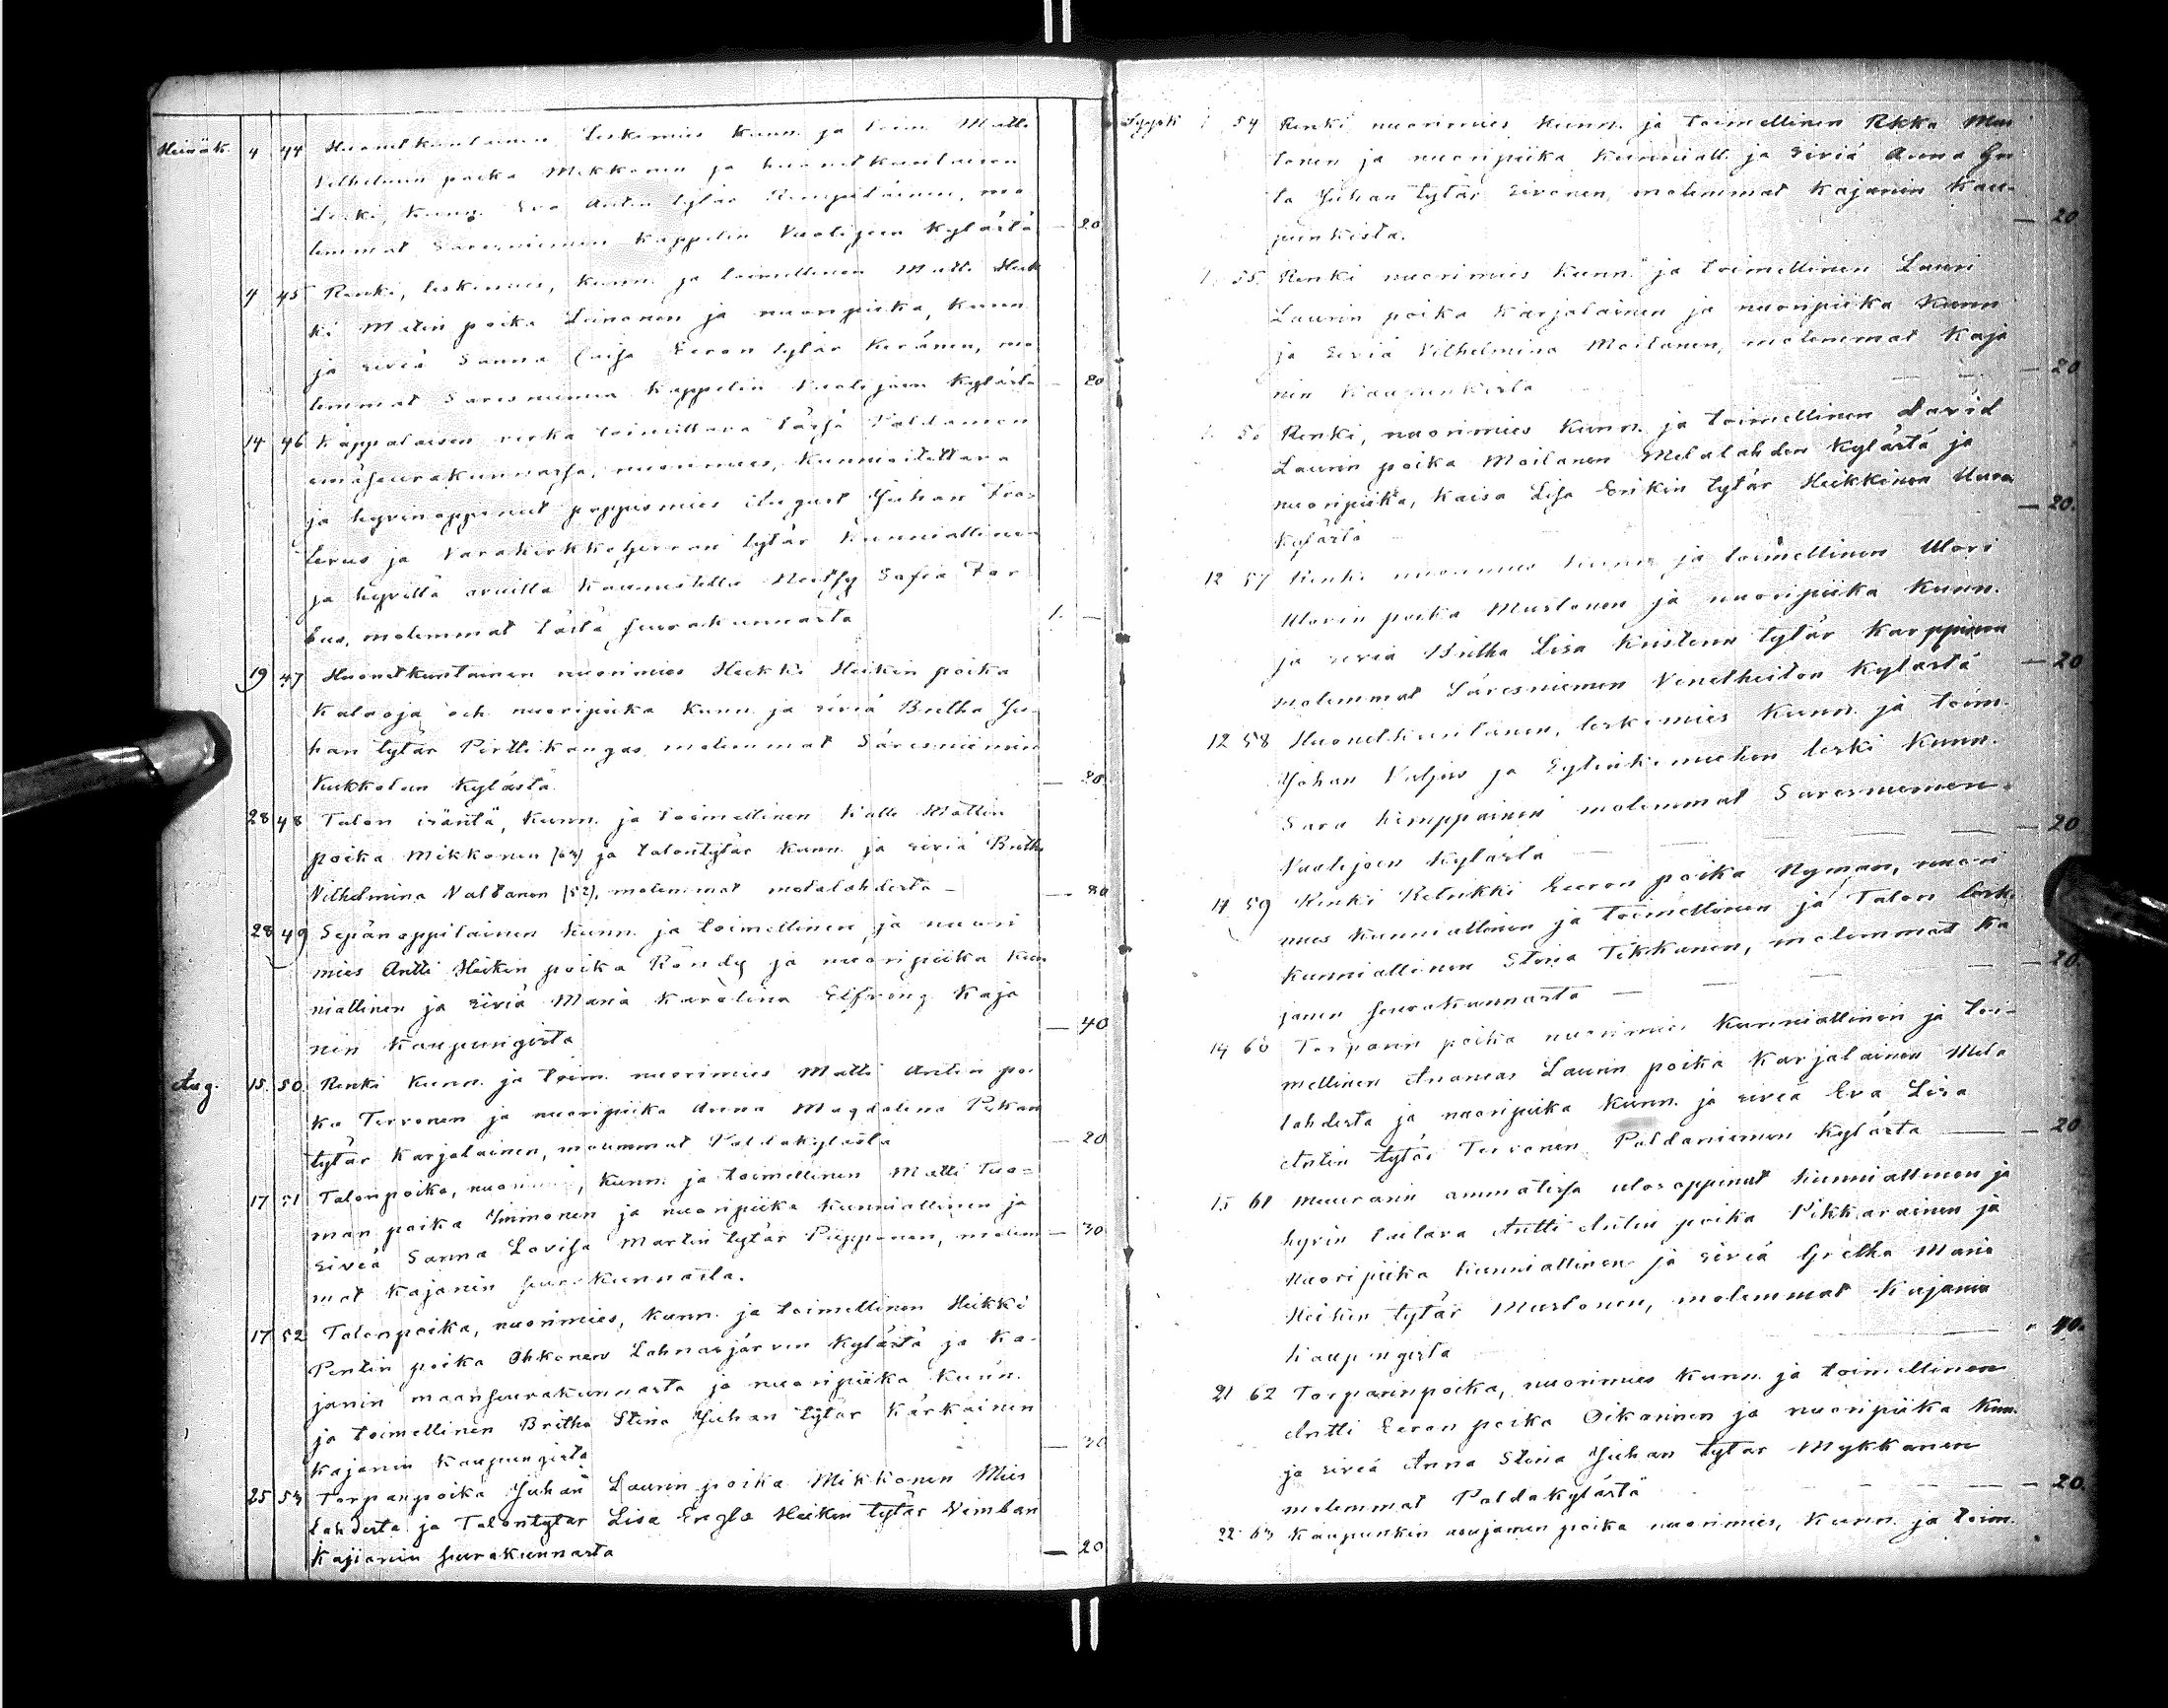 Heinäk. 4 44 Huonetkuntainen Leskimies Kunn. ja toim. Matti
Vilhelmin poika Mikkonen ja huonetkuntaisen
Leski, Kunn. Eva Antin tytär Rimpiläinen, mo
lemmat Säresniemen Kappelin Vuolijoen Kylästä — 20
4 45 Renki, leskimies, Kunn. ja toimellinen Matti Heik
ki Matin poika Leinonen ja nuoripiika, Kunn
ja siviä Sanna Caisa Eeron tytär Keränen, mo
lemmat Säresniemen Kappelin Vuolijoen Kylästä — 20
14 46 Kappalaisen virka toimittava tässä Paldamon
emäseurakunnassa, nuorimies, Kunnioitettava
ja hyvinoppinut pappismies August Juhan
ja Varakirkkoherran tytär Kunniallinen
ja hyvillä avuilla Kaunistettu Sofia
molemmat tästä seurakunnasta 1. —
19 47 Huonetkuntainen nuorimies Heikki Heikin poika
Kalaoja och nuoripiika Kunn. ja siviä Britha Ju
han tytär Pirttikangas molemmat Säresniemen
Kukkolan Kylästä — 20
28 48 Talon isäntä, Kunn. ja toimellinen Kalle Mattin
poika Mikkonen ja talontytär Kunn. ja siviä Britha
Vilhelmina Valtanen (52), molemmat melalahdesta — 80
28 49 Sepänoppilainen Kunn. ja toimellinen ja nuori
mies Antti Heikin poika Röndy ja nuoripiika Kun
niallinen ja siviä Maria Karolina Elfving Kaja
nin Kaupungista — 40
Aug. 15. 50. Renki Kunn. ja toim. nuorimies Matti Antin poi
ka Tervonen ja nuoripiika Anna Magdalena Pekan
tytär Karjalainen, molemmat Paldakylästä — 20
17 51 Talonpoika, nuorimies, Kunn. ja toimellinen Matti Tuo=
man poika Immonen ja nuoripiika Kunniallinen ja
siviä Sanna Lovisa Martin tytär Piipponen, molem — 30
mat Kajanin seurakunnasta.
17 52 Talonpoika, nuorimies, Kunn. ja toimellinen Heikki
Pentin poika Ohkonen Lahnasjärven Kylästä ja Ka-
janin maanseurakunnasta ja nuoripiika Kunn.
ja toimellinen Britha Stina Juhan tytär Kärkäinen
Kajanin Kaupungista — 30
25 53 Torpanpoika Juhan Laurin poika Mikkonen Mies
lahdesta ja Talontytär Lisa Heikin tytär
Kajanin seurakunnasta — 20
Syysk 1 54 Renki nuorimies Kunn. ja toimellinen Pekka Mus
tonen ja nuoripiika Kunniall. ja siviä Anna Gre
ta Juhan tytär Sivonen, molemmat Kajanin Kau-
punkista. — 20
1. 55. Renki nuorimies Kunn. ja toimellinen Lauri
Laurin poika Karjalainen ja nuoripiika Kunn
ja siviä Vilhelmina Moilanen, molemmat Kaja
nin Kaupunkista — 20
1. 56 Renki, nuorimies Kunn. ja toimellinen David
Laurin poika Moilanen Melalahden Kylästä ja
nuoripiika, Kaisa Lisa Erikin tytär Heikkinen
Kylästä — 20.
12 57 Renki nuorimies Kunn. ja toimellinen Mori
Morin poika Mustonen ja nuoripiika Kunn.
ja siviä Britha Lisa tytär Karppinen
molemmat Säresniemen Venetheiton Kylästä — 20
12 58 Huonetkuntainen, leskimies Kunn. ja toim.
Johan Valjus ja leski Kunn.
Sara Kemppainen molemmat Säresniemen
Vuolijoen Kylästä — 20
14 59 Renki Eeron poika Nyman, nuori
mies Kunniallinen ja toimellinen ja Talon leski
Kunniallinen Stina Tikkanen, molemmat Ka
janin seurakunnasta — 20.
14 60 Torparin poika nuorimies Kunniallinen ja toi-
mellinen Ananias Laurin poika Karjalainen Mela
lahdesta ja nuoripiika Kunn. ja siviä Eva Lisa
Antin tytär Tervonen Paldaniemen Kylästä — 20
15 61 Muurarin ammatissa ulosoppinut Kunniallinen ja
hyvin taitava Antti Antin poika Pikkarainen ja
Nuoripiika Kunniallinen ja siviä Gretha Maria
Heikin tytär Mustonen, molemmat Kajanin
Kaupungista 40.
21 62 Torparinpoika, nuorimies Kunn. ja toimellinen
Antti Eeron poika Oikarinen ja nuoripiika Kun.
ja siviä Anna Stina Juhan tytär Mykkänen
molemmat Paldakylästä — 20.
22 63 Kaupunkin asujamen poika nuorimies, Kunn. ja toim.